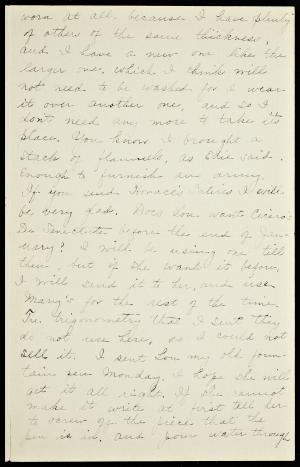 worn at all, because I have plenty
of others of the same thickness,
and I have a new one like the
larger one, which I think will
not need to be washed for I wear
it over another one, and so I
don't need any more to take its
place. You know I brought a
stack of flannels, as Edie said,
enough to furnish an army.
If you send Horace's Satires I will
be very glad. Does Lou want Cicero's
De Senectute before the end of Jan-
uary? I will be using one till
then, but if she wants it before,
I will send it to her, and use
Mary's for the rest of the time.
The trigonometry that I sent they
do not use here, so I could not
sell it. I sent Lou my old foun-
tain pen Monday. I hope she will
get it all right. If she cannot
make it write at first tell her
to screw off the piece that the
pen is in, and pour water through